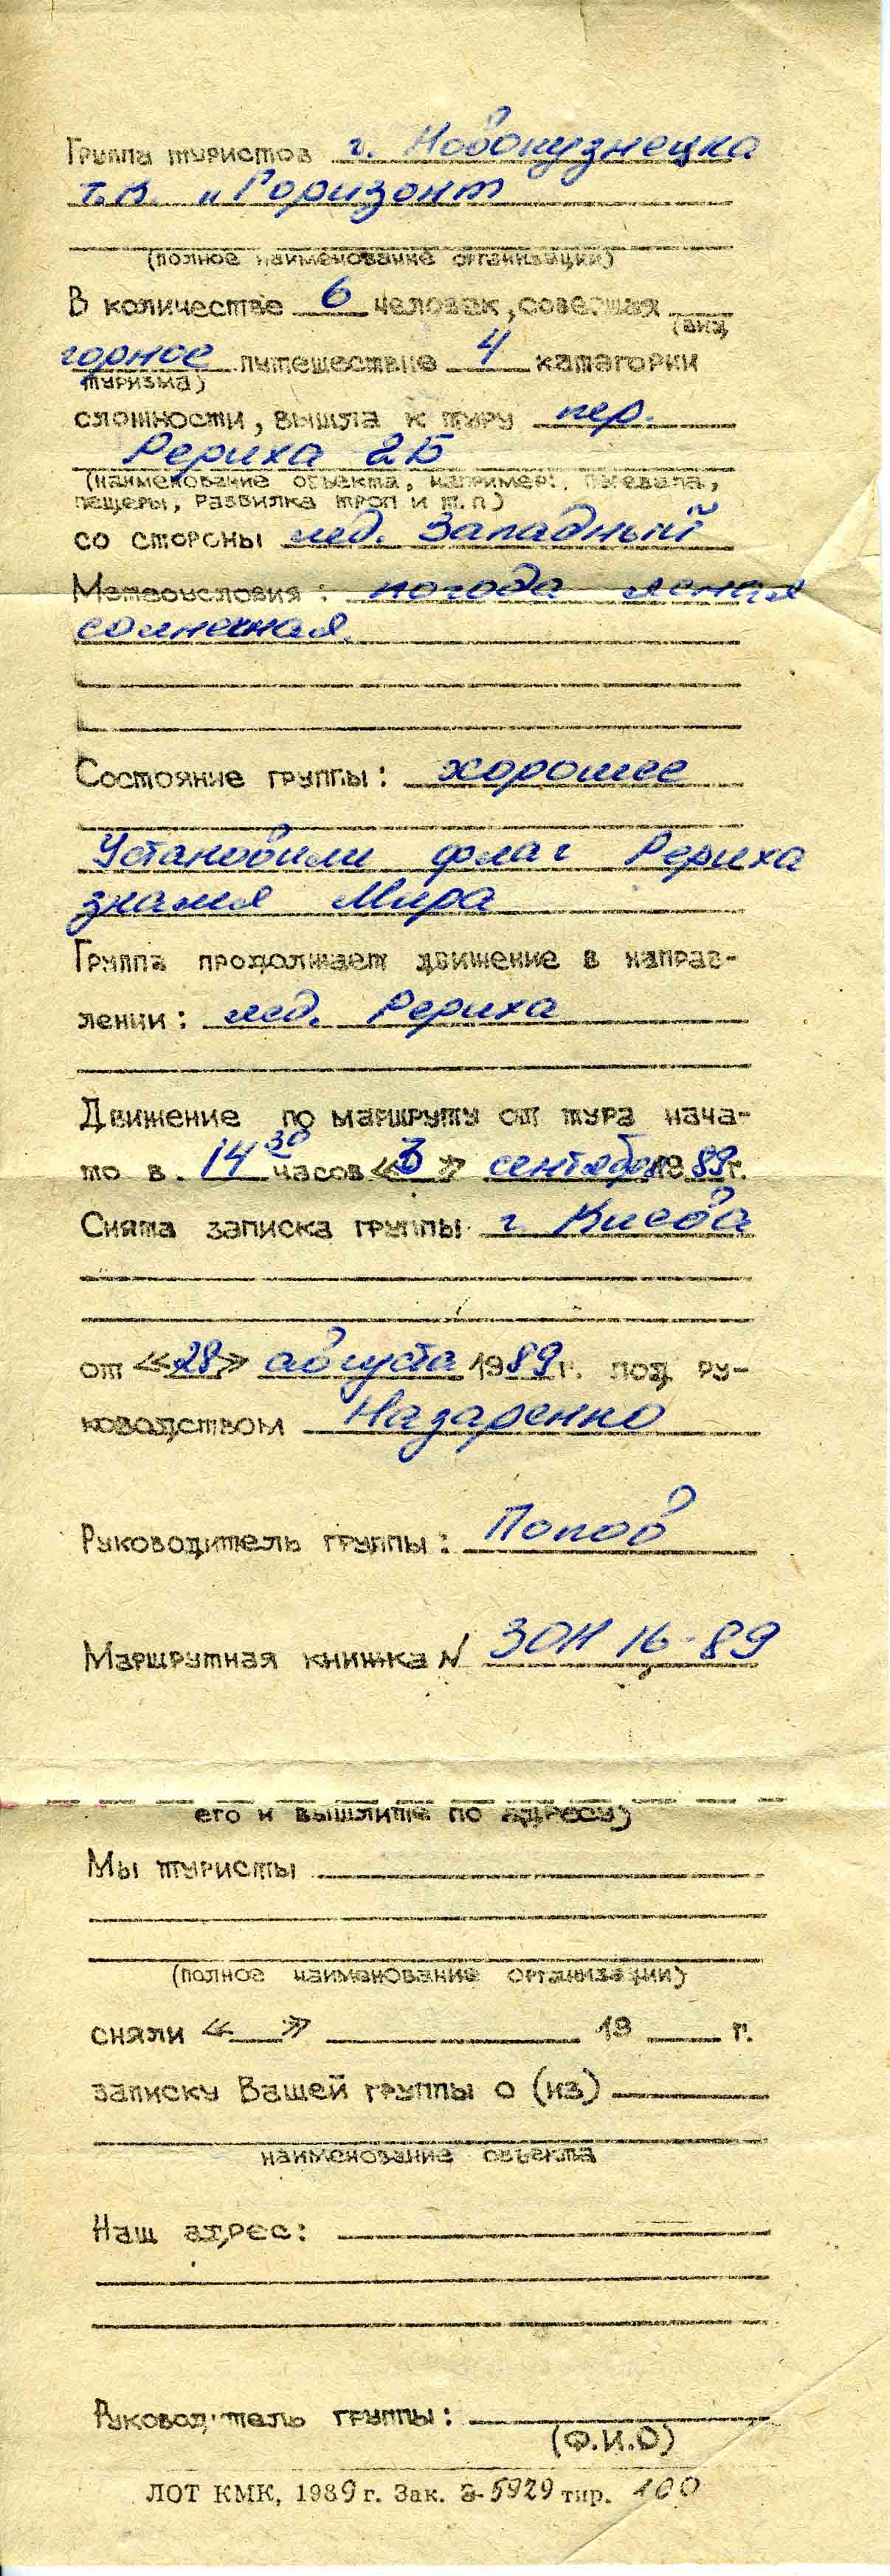 Группа туристов г. Новокузнецка
т.к. "Горизонт
(полное наименование организации)
В количестве 6 человек, совершая
(вид
горное путешествие 4 категории
туризма)
сложности, вышла к туру пер.
Рериха 2Б
(наименование объекта, например: перевала,
пещеры, развилка троп и т.п)
со стороны лед. Западный
Метеоусловия: погода ясная
солнечная.
Состояние группы: хорошее
Установили флаг Рериха
знамя Мира
Группа продолжает движение в направ-
лении: лед. Рериха
Движение по маршруту от тура нача-
то в 14 30 часов «3» сентября 1989г.
Снята записка группы г. Киева
от «28» августа 1989г. под ру-
ководством Назаренко
Руководитель группы: Попов
Маршрутная книжка N 16-89
его и вышлите по адресу)
Мы туристы
(полное наименование организации)
сняли « » 19 г.
записку Вашей группы о (из)
наименование объекта
Наш адрес:
Руководитель группы:
(Ф.И.О)
ЛОТ КМК, 1989 г. Зак. 3-5929 тир. 100